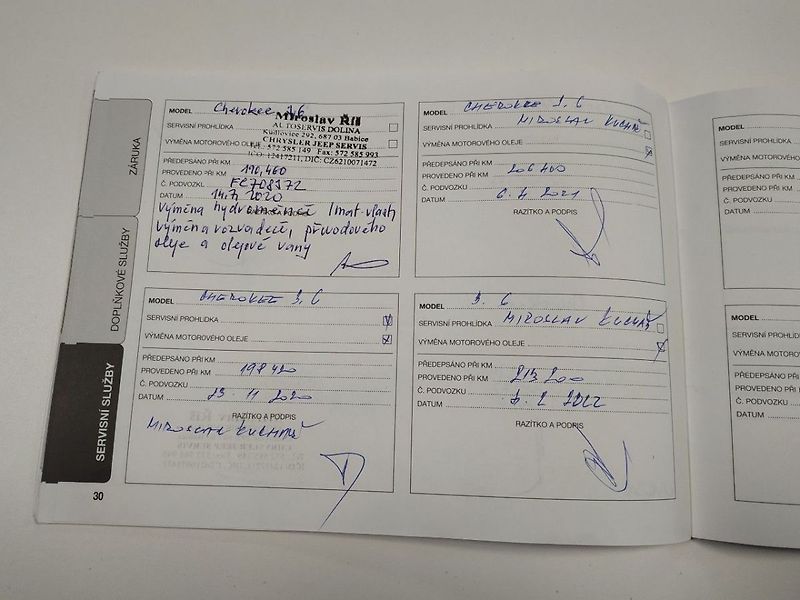 ZÁRUKA
DOPLŇKOVÉ SLUŽBY
SERVISNÍ SLUŽBY
MODEL Cherokee
SERVISNÍ PROHLÍDKA
VÝMĚNA MOTOROVÉHO OLEJE
PŘEDEPSÁNO PŘI KM
PROVEDENO PŘI KM 190,460
Č. PODVOZKU
DATUM 14.7. 2020
Miroslav Říl
AUTOSERVIS DOLINA
Kudlovice 292, 687 03 Babice
CHRYSLER JEEP SERVIS
Tel.: 572 585 149 Fax: 572 585 993
IČO: 12417211, DIČ: CZ6210071472
Výměna
výměna rozvaděčů, převodového
oleje a olejové vany
MODEL CHEROKEE 3.6
MIROSLAV KUCHAŘ
SERVISNÍ PROHLÍDKA
VÝMĚNA MOTOROVÉHO OLEJE
PŘEDEPSÁNO PŘI KM
PROVEDENO PŘI KM 206 400
Č. PODVOZKU
DATUM 2021
RAZÍTKO A PODPIS
MODEL CHEROKEE 3.6
SERVISNÍ PROHLÍDKA
VÝMĚNA MOTOROVÉHO OLEJE
PŘEDEPSÁNO PŘI KM
PROVEDENO PŘI KM 198 420
Č. PODVOZKU
DATUM 23. 11 2020
RAZÍTKO A PODPIS
MIROSLAV KUCHAŘ
MODEL 3.6
SERVISNÍ PROHLÍDKA MIROSLAV KUCHAŘ
VÝMĚNA MOTOROVÉHO OLEJE
PŘEDEPSÁNO PŘI KM
PROVEDENO PŘI KM 213 200
Č. PODVOZKU
DATUM 2 2022
RAZÍTKO A PODPIS
MODEL
SERVISNÍ PROHLÍD
VÝMĚNA MOTOROVÉ
PŘEDEPSÁNO PŘI K
PROVEDENO PŘI KM
Č. PODVOZKU
DATUM
MODEL
SERVISNÍ PROHLÍD
VÝMĚNA MOTOROVÉ
PŘEDEPSÁNO PŘI
PROVEDENO PŘI KM
Č. PODVOZKU
DATUM
30